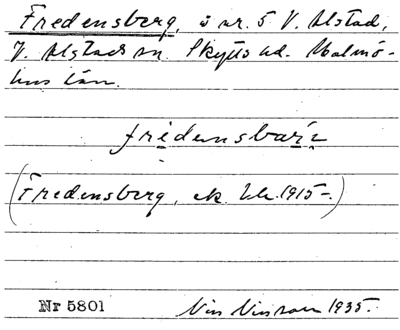 Fredensberg, å nr. 5 V. Alstad,
V. Alstads sn. Skytts hd. Malmö-
hus län.
fridensbarį
(Fredensberg, ek. bl. 1915-.)
Nr 5801 Nils Nilsson 1935.